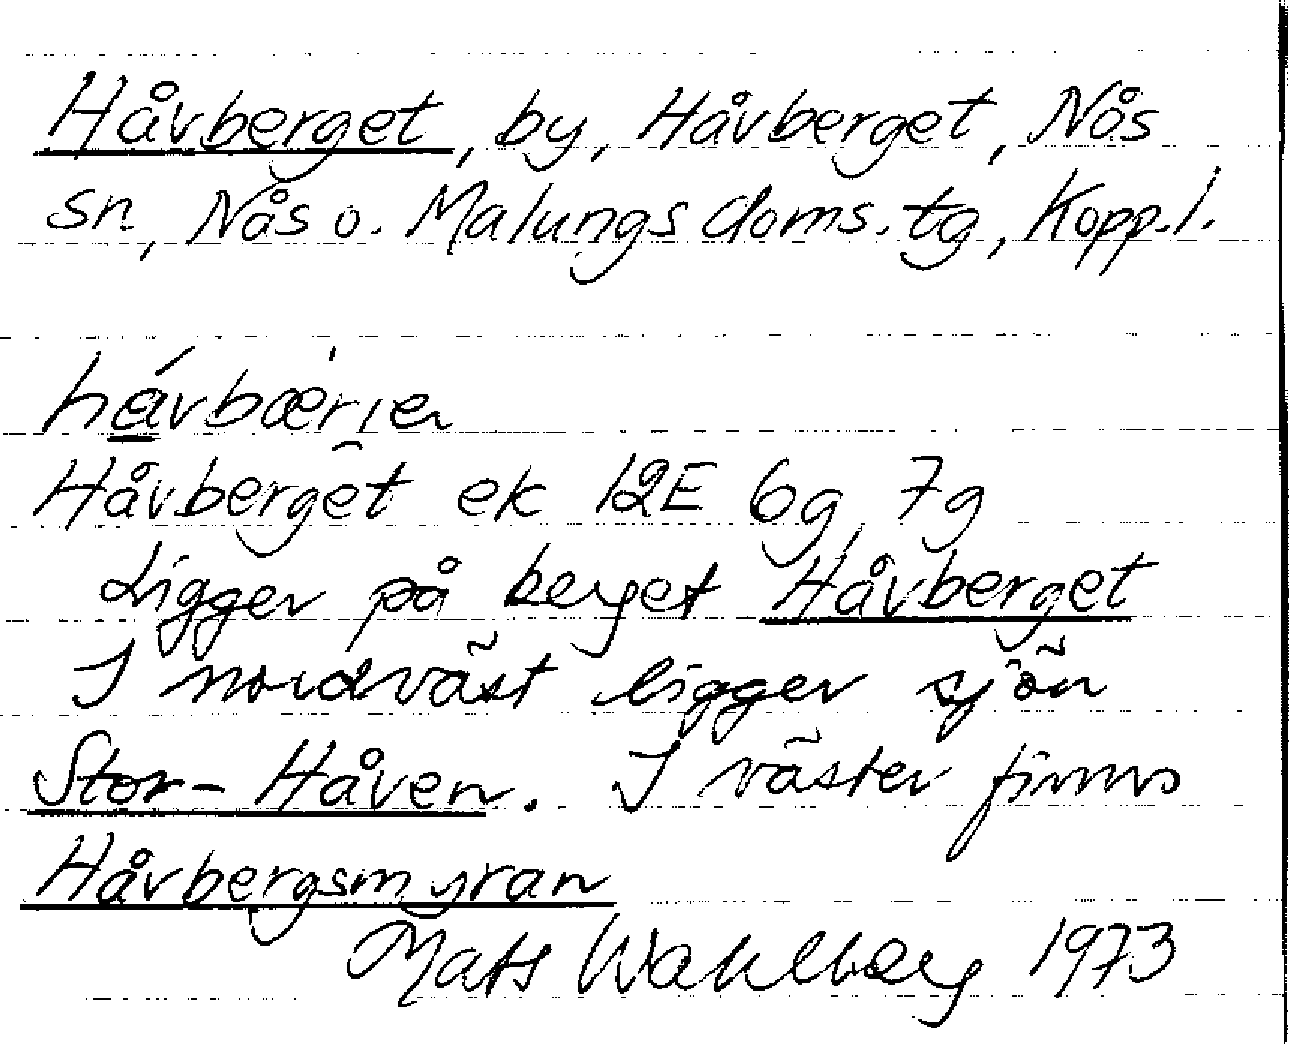 Håvberget, by, Håvberget, Nås
sn, Nås o. Malungs doms. tg, Kopp.l.
hávbær̀ɪen
Håvberget ek 12E 6g, 7g
Ligger på berget Håvberget
I nordväst ligger sjön
Stor-Håven. I väster finns
Håvbergsmyran
Mats Wahlberg 1973